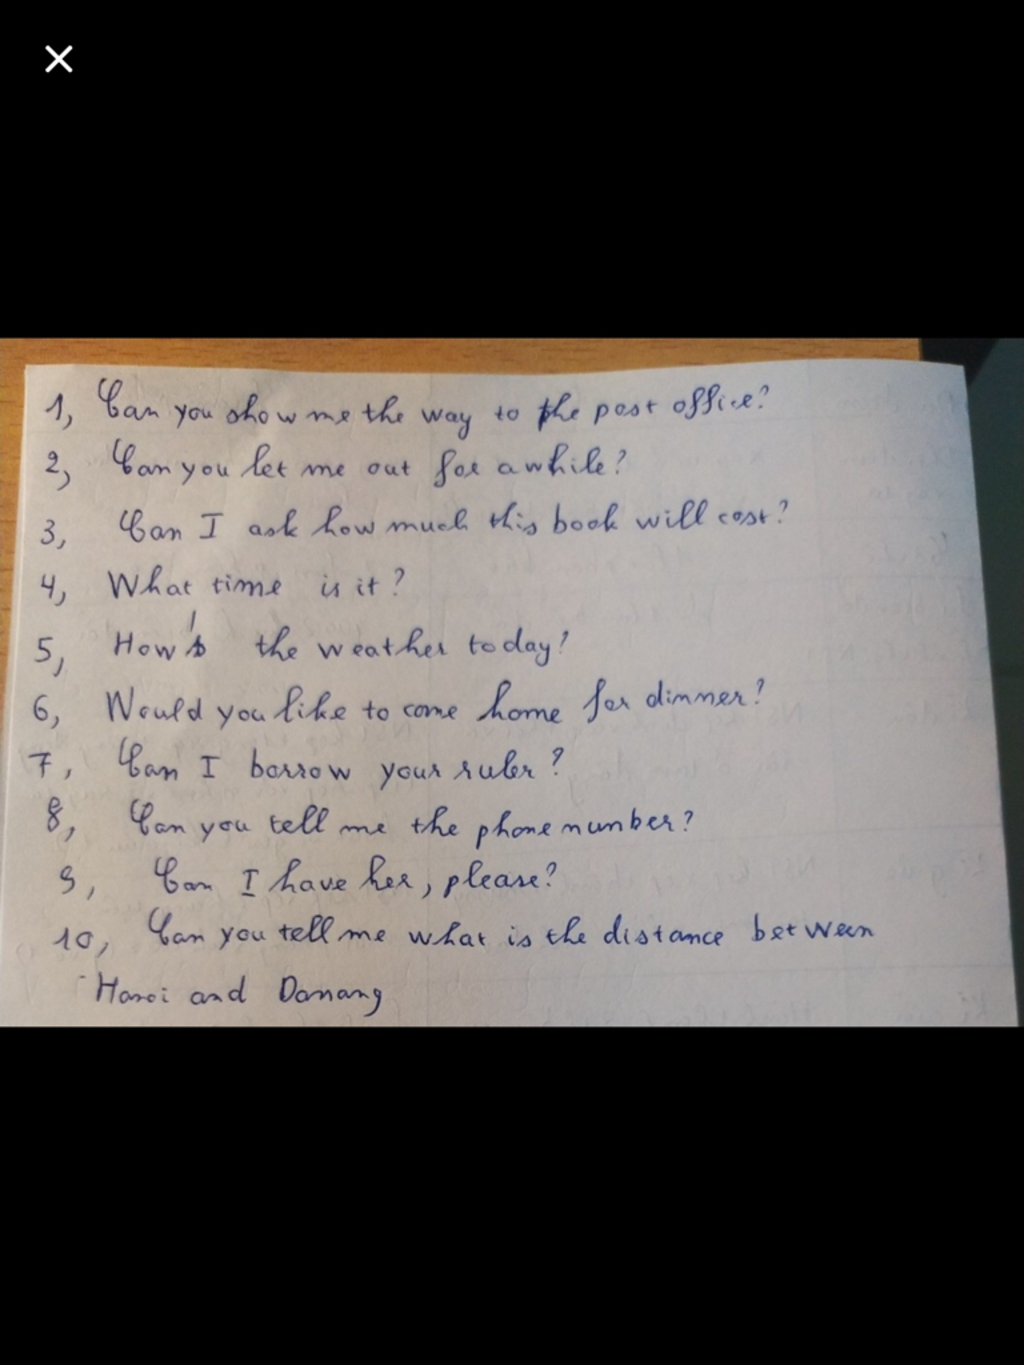 1, Can you show me the way to the post office?
2, Can you let me out for a while?
3, Can I ask how much this book will cost?
4, What time is it?
5, How's the weather today?
6, Would you like to come home for dinner?
7, Can I borrow your ruler?
8, Can you tell me the phone number?
9, Can I have her, please?
10, Can you tell me what is the distance between
Hanoi and Danang